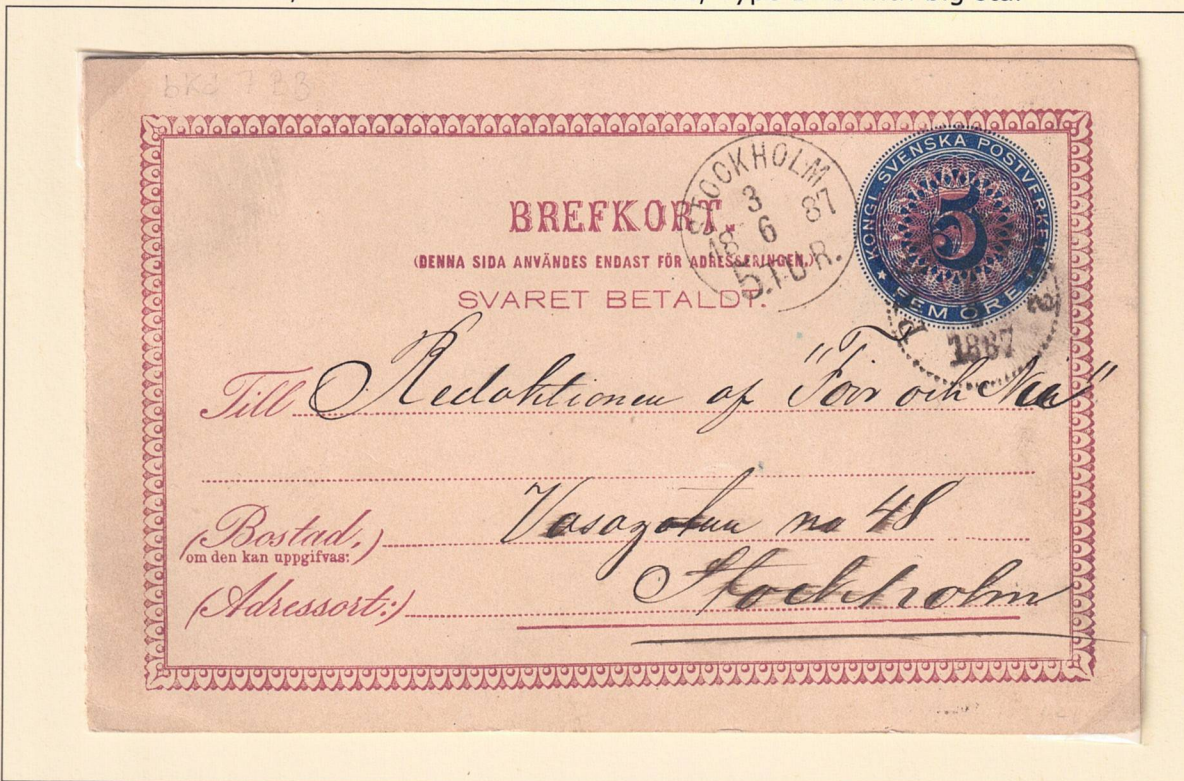 bKd 7 BB
BREFKORT.
(DENNA SIDA ANVÄNDES ENDAST FÖR ADRESSERINGEN.)
SVARET BETALDT.
STOCKHOLM
3
18 6 87
5.TUR.
KONGL. SVENSKA POSTVERKET
5
FEM ÖRE
1887
Till Redaktionen af "Förr och Nu"
(Bostad, Vasagatan no 48
om den kan uppgifvas:)
(Adressort:) Stockholm